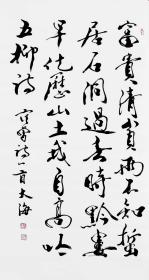 富貴清貧兩不知蟄
居石洞過春時黔婁
早化歷山土我自高吟
五柳詩 詩一首大海